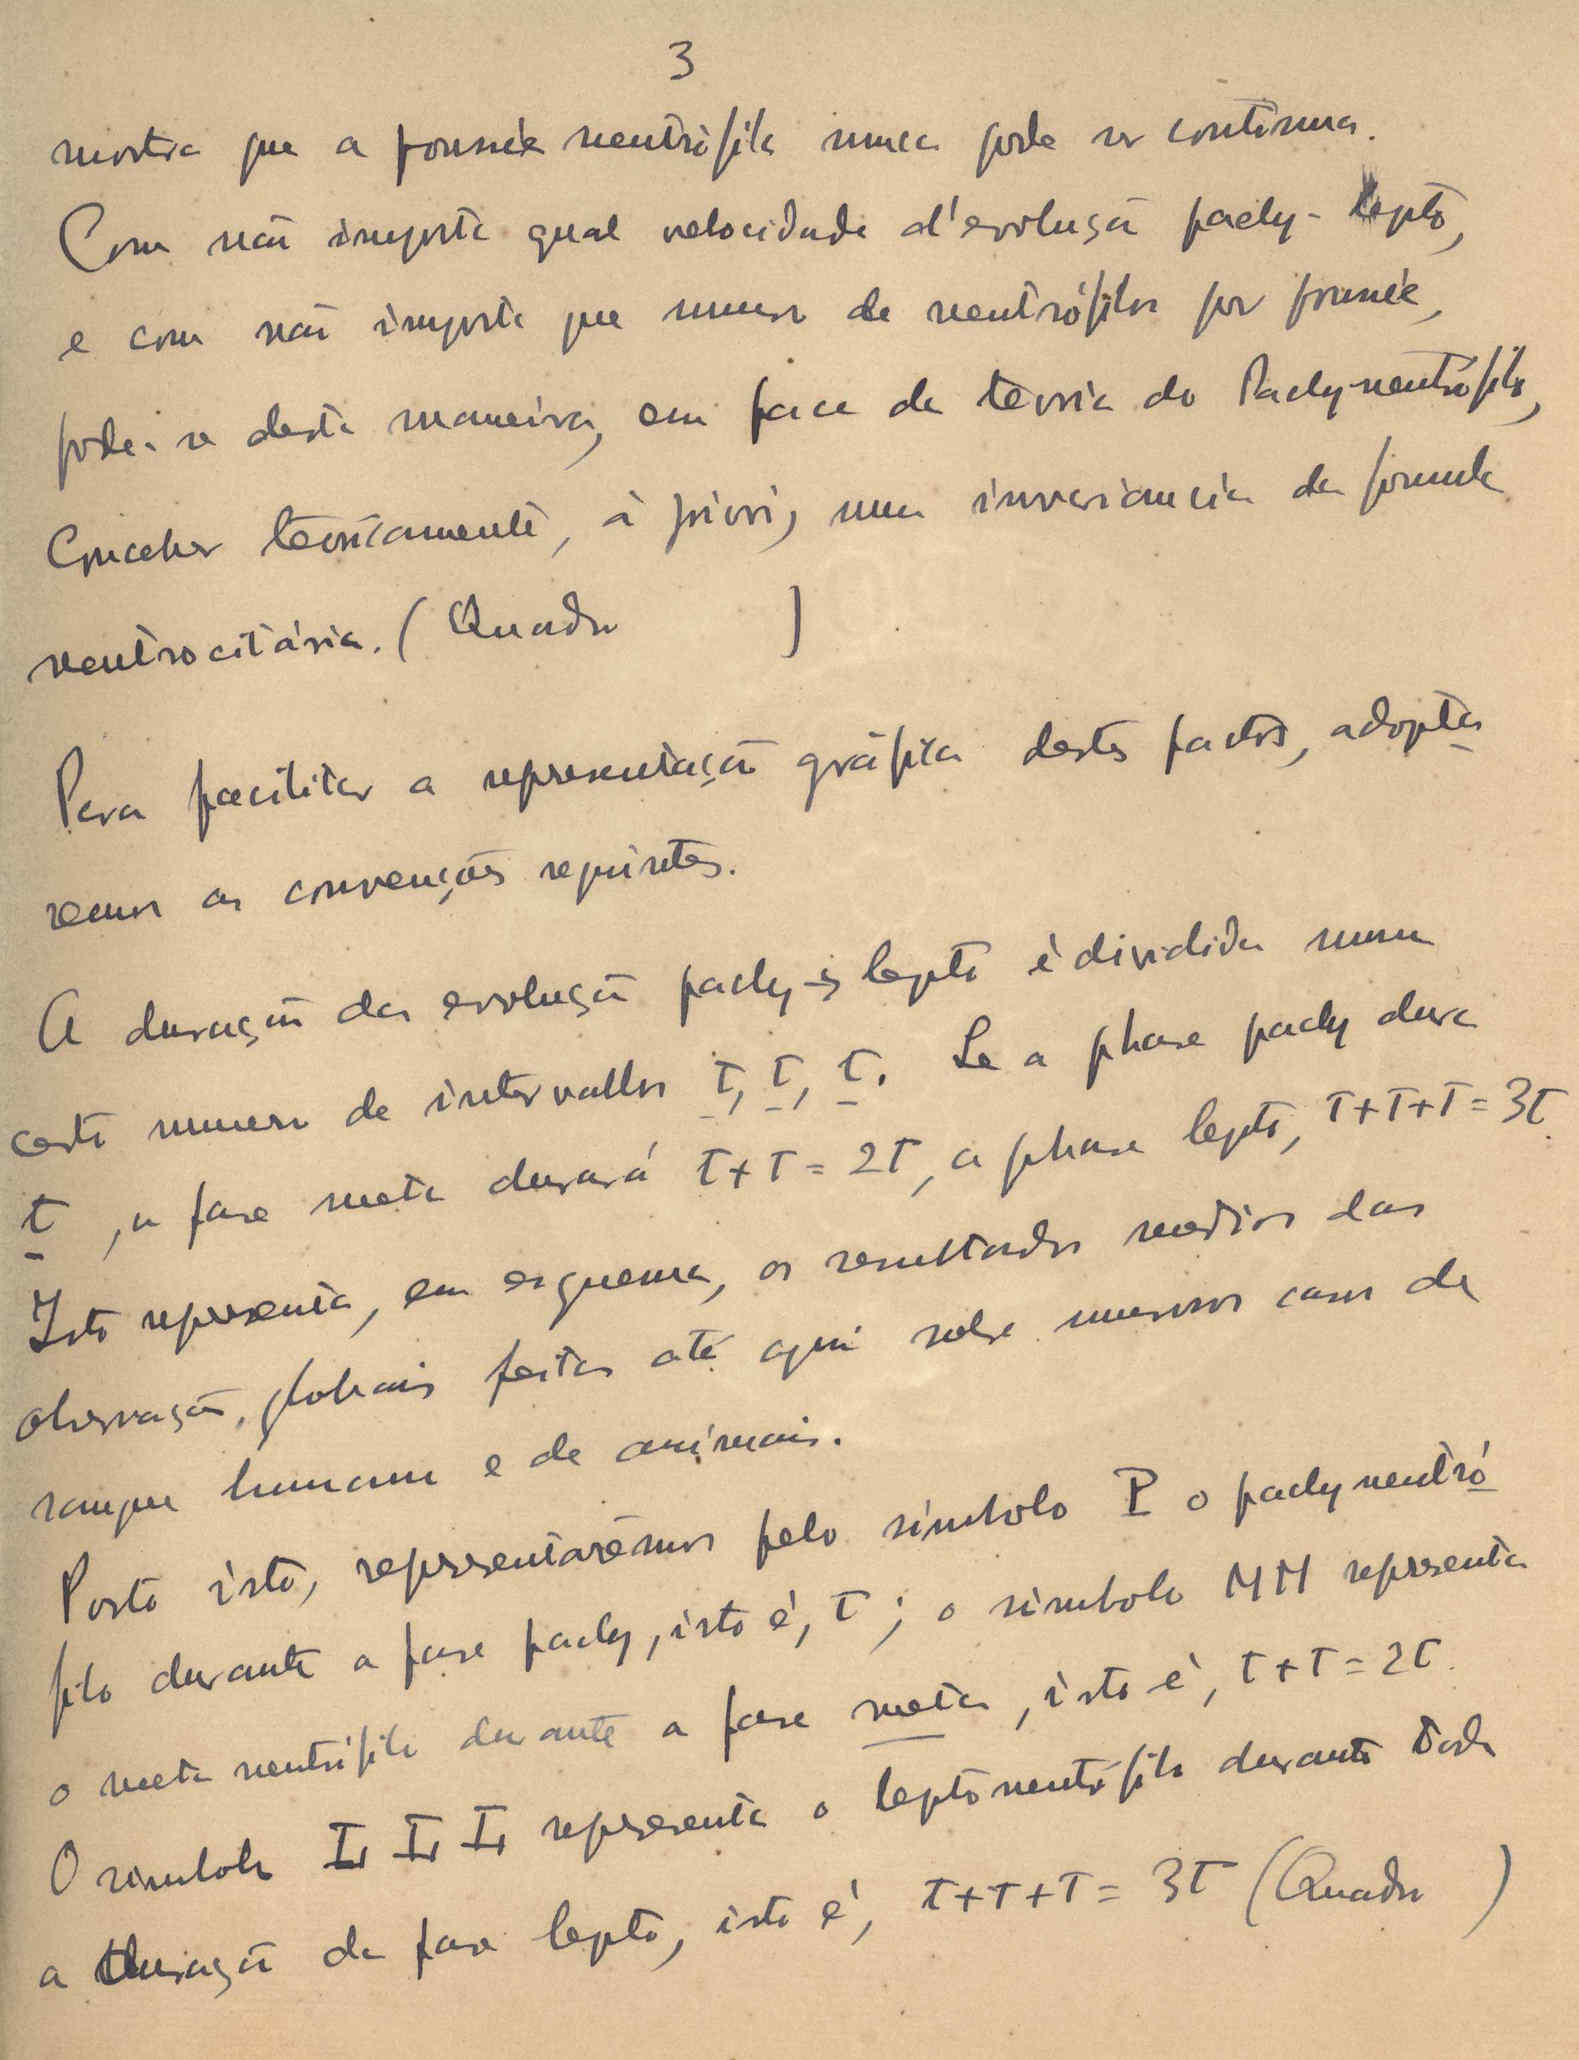 3
mostra que a poussée neutrófila nunca pode ser continua.
Com não importa qual velocidade d'evolução pachy-lepto,
e com não importa que numero de neutrófilos por poussée,
pode-se desta maneira, em face da teoria do Pachyneutrófilo,
Conceber teoricamente, à priori, uma invariancia da formula
neutrocitária. (Quadro )
Para facilitar a representação gráfica destes factos, adopta
remos as convenções seguintes.
A duração da evolução pachy → lepto é dividida num
certo numero de intervallos t, t, t. Se a phase pachy dura
t, a fase meta durará t+t = 2t, a phase lepto, t+t+t = 3t.
Isto representa, em esquema, os resultados medios das
observação, globais feitas até aqui sobre numerosos casos de
sangue humano e de animais.
Posto isto, representarêmos pelo símbolo P o pachyneutró
filo durante a fase pachy, isto é, t; o símbolo MM representa
o meta neutrófilo durante a fase meta, isto é, t+t = 2t.
O símbolo L L L representa o leptoneutrófilo durante toda
a duração da fase lepto, isto é, t+t+t = 3t (Quadro )